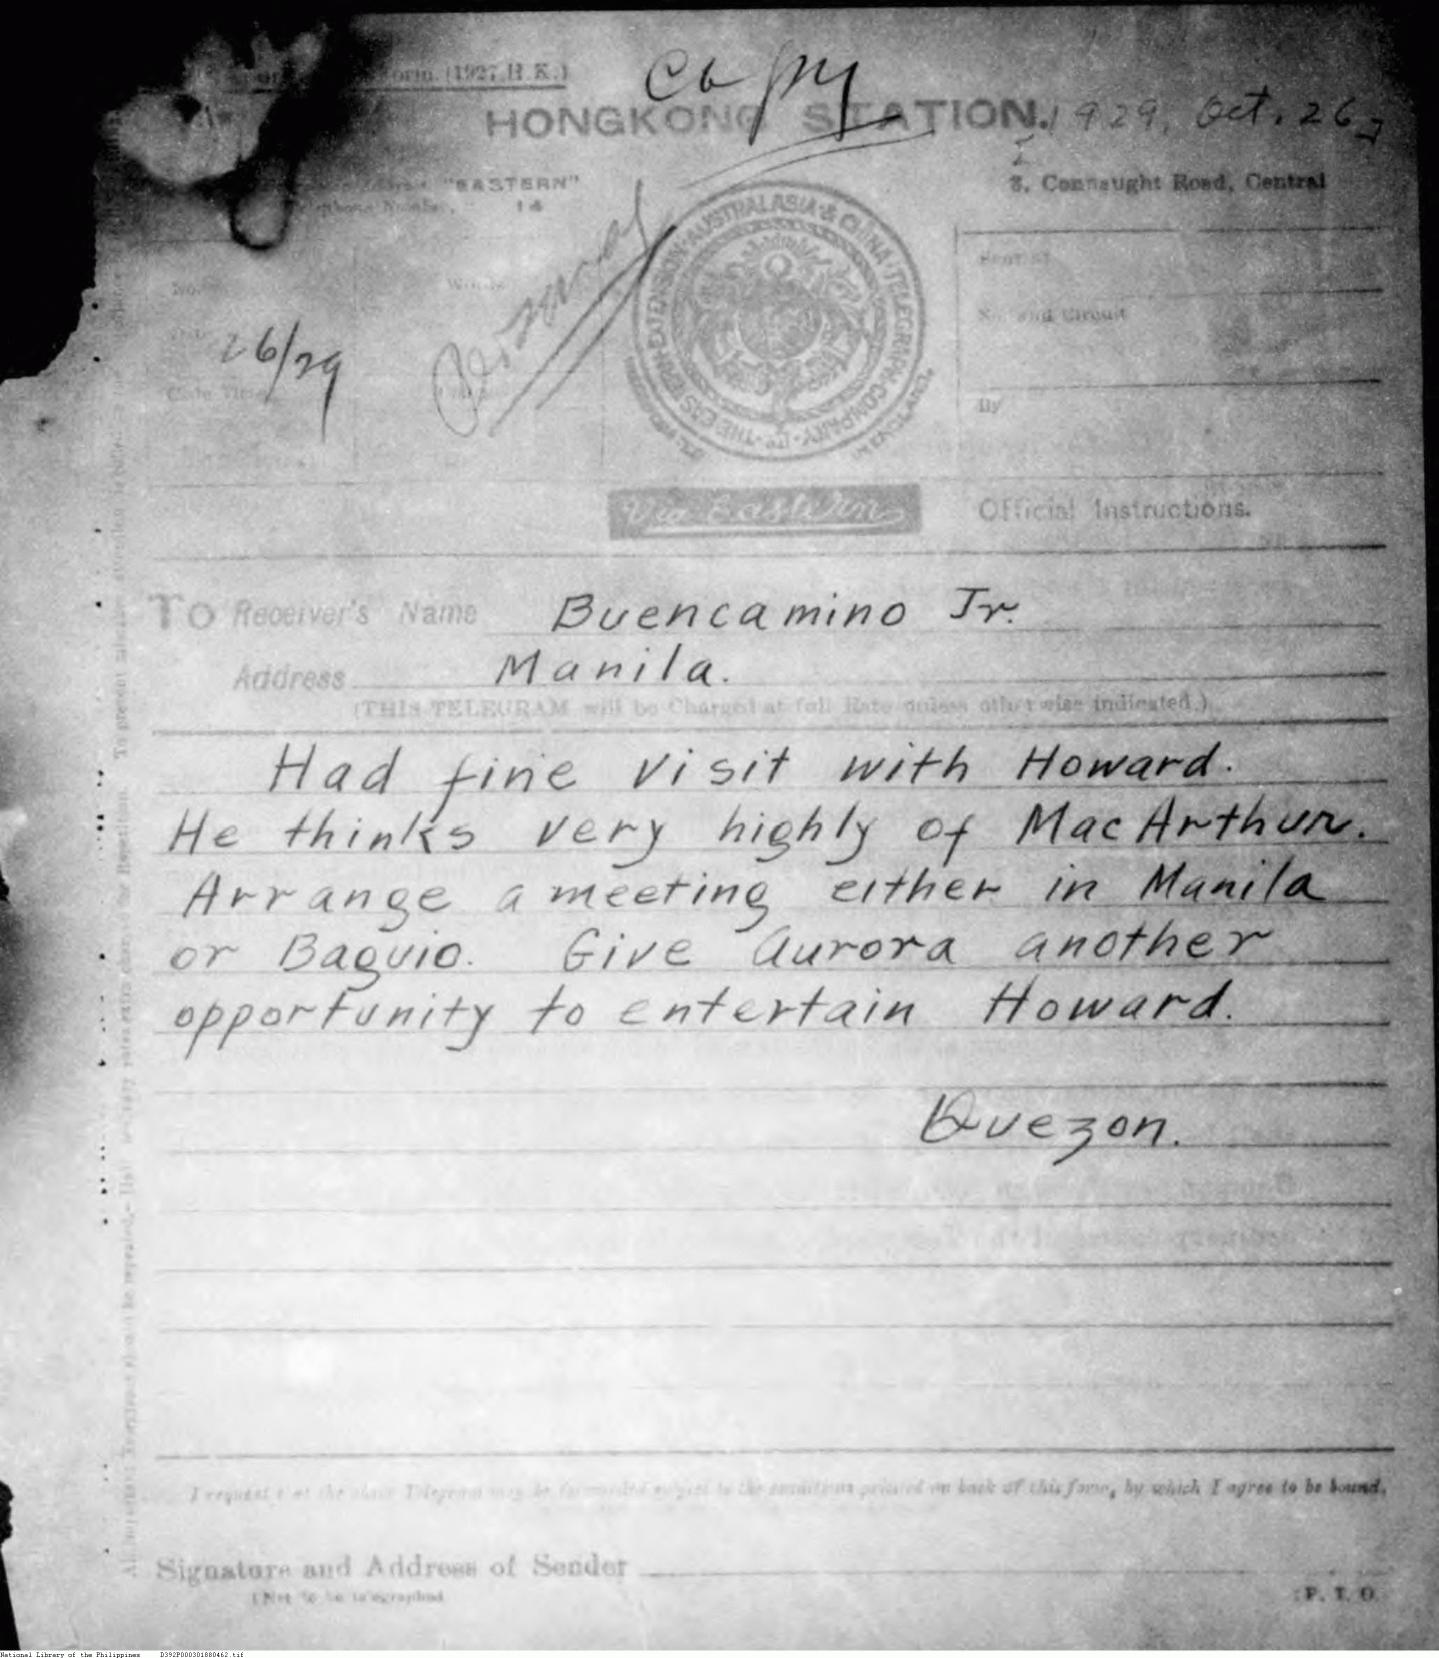 Form. (1927.H.K.)
Copy
HONGKONG STATION.
1929, Oct. 26,
"EASTERN"
14
3, Connaught Road, Central
Personal
THE EASTERN EXTENSION AUSTRALASIA & CHINA TELEGRAPH COMPANY LTD.
No.
Words
Sent at
No. and Circuit
26/29
Code Time
By
Via Eastern
Official Instructions.
TO Receiver's Name Buencamino Jr.
Address Manila.
(THIS TELEGRAM will be Charged at full Rate unless otherwise indicated.)
Had fine visit with Howard.
He thinks very highly of MacArthur.
Arrange a meeting either in Manila
or Baguio. Give Aurora another
opportunity to entertain Howard.
Quezon.
I request that the above Telegram may be forwarded subject to the conditions printed on back of this form, by which I agree to be bound.
Signature and Address of Sender
(Not to be telegraphed
P. T. O.
National Library of the Philippines D392P000301880462.tif